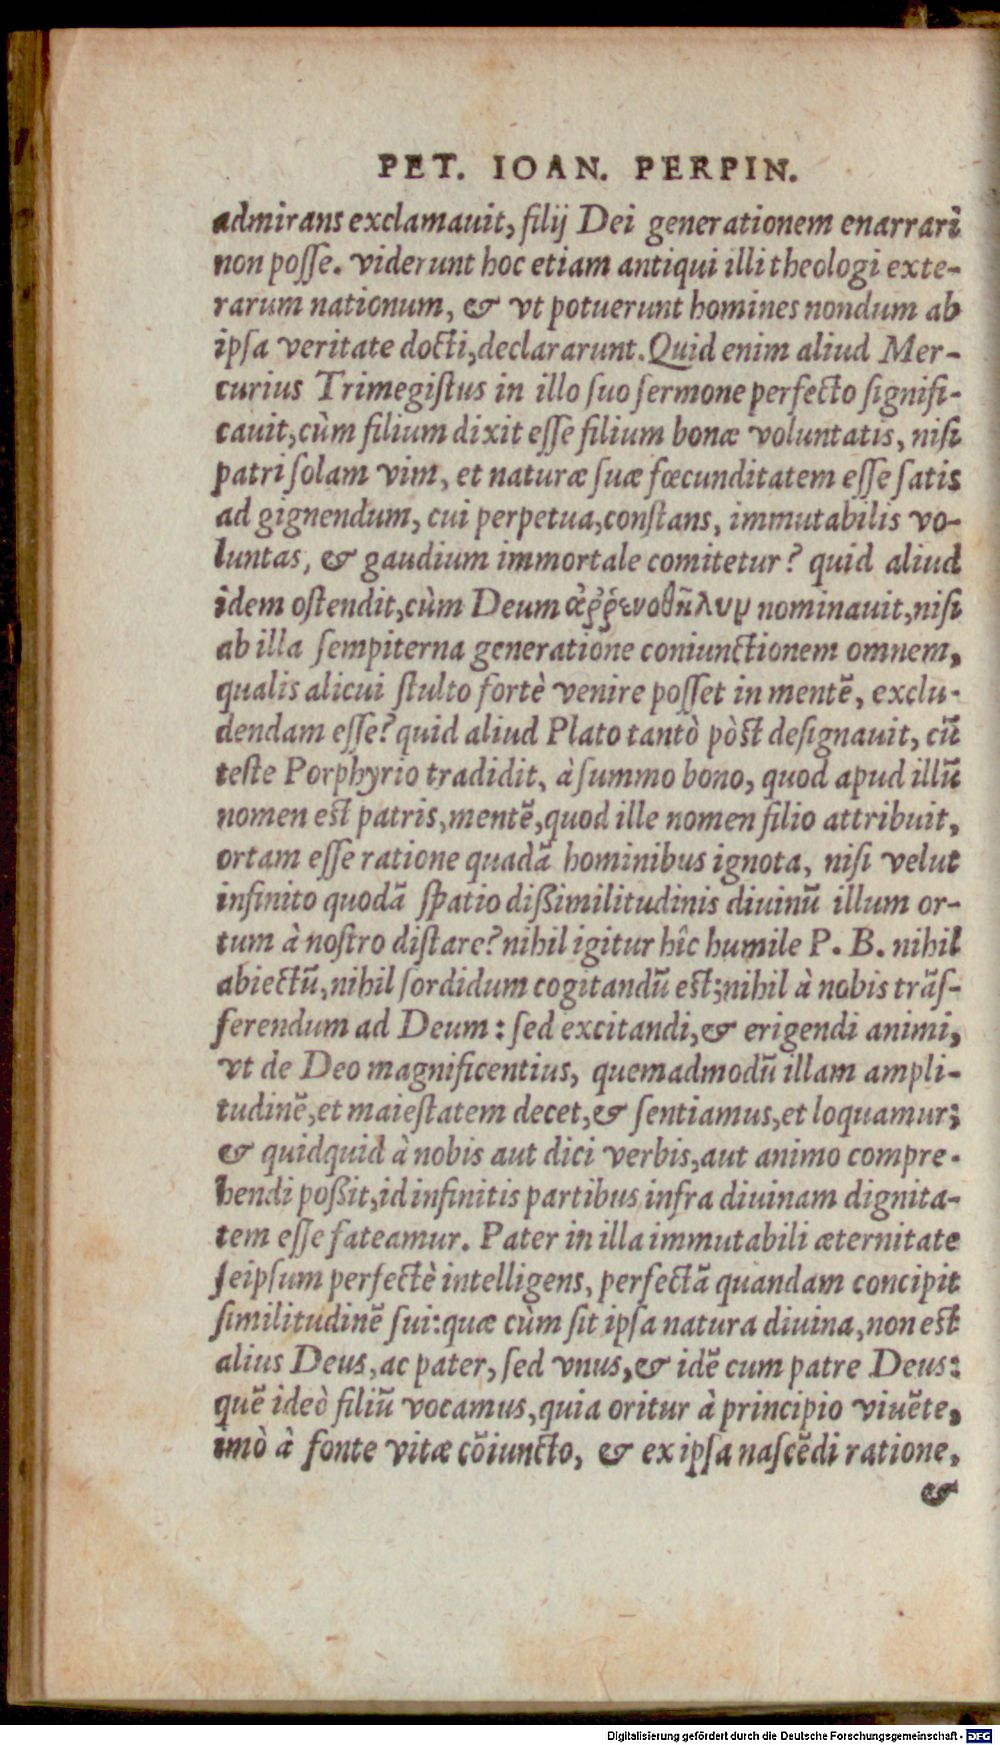 PET. IOAN. PERPIN.
admirans exclamauit, filij Dei generationem enarrari
non posse. viderunt hoc etiam antiqui illi theologi exte-
rarum nationum, & vt potuerunt homines nondum ab
ipsa veritate docti, declararunt. Quid enim aliud Mer-
curius Trimegistus in illo suo sermone perfecto signifi-
cauit, cùm filium dixit esse filium bonæ voluntatis, nisi
patri solam vim, et naturæ suæ fœcunditatem esse satis
ad gignendum, cui perpetua, constans, immutabilis vo-
luntas, & gaudium immortale comitetur? quid aliud
idem ostendit, cùm Deum ἀῤῥενοθῆλυν nominauit, nisi
ab illa sempiterna generatione coniunctionem omnem,
qualis alicui stulto fortè venire posset in mentẽ, exclu-
dendam esse? quid aliud Plato tantò pòst designauit, cũ
teste Porphyrio tradidit, à summo bono, quod apud illũ
nomen est patris, mentẽ, quod ille nomen filio attribuit,
ortam esse ratione quadã hominibus ignota, nisi velut
infinito quodã spatio dißimilitudinis diuinũ illum or-
tum à nostro distare? nihil igitur hîc humile P. B. nihil
abiectũ, nihil sordidum cogitandũ est; nihil à nobis trãs-
ferendum ad Deum: sed excitandi, & erigendi animi,
vt de Deo magnificentius, quemadmodũ illam ampli-
tudinẽ, et maiestatem decet, & sentiamus, et loquamur;
& quidquid à nobis aut dici verbis, aut animo compre-
hendi poßit, id infinitis partibus infra diuinam dignita-
tem esse fateamur. Pater in illa immutabili æternitate
seipsum perfectè intelligens, perfectã quandam concipit
similitudinẽ sui: quæ cùm sit ipsa natura diuina, non est
alius Deus, ac pater, sed vnus, & idẽ cum patre Deus:
quẽ ideò filiũ vocamus, quia oritur à principio viuẽte,
imò à fonte vitæ cõiuncto, & ex ipsa nascẽdi ratione,
&
Digitalisierung gefördert durch die Deutsche Forschungsgemeinschaft - DFG